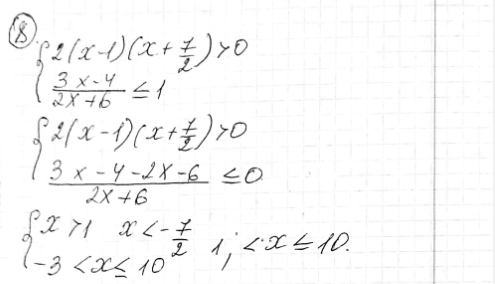 8
{ 2(x-1)(x+7/2)>0
{ (3x-4)/(2x+6) ≤ 1
{ 2(x-1)(x+7/2)>0
{ (3x-4-2x-6)/(2x+6) ≤ 0
{ x>1 x<-7/2
{ -3<x≤10 1; <x≤10.